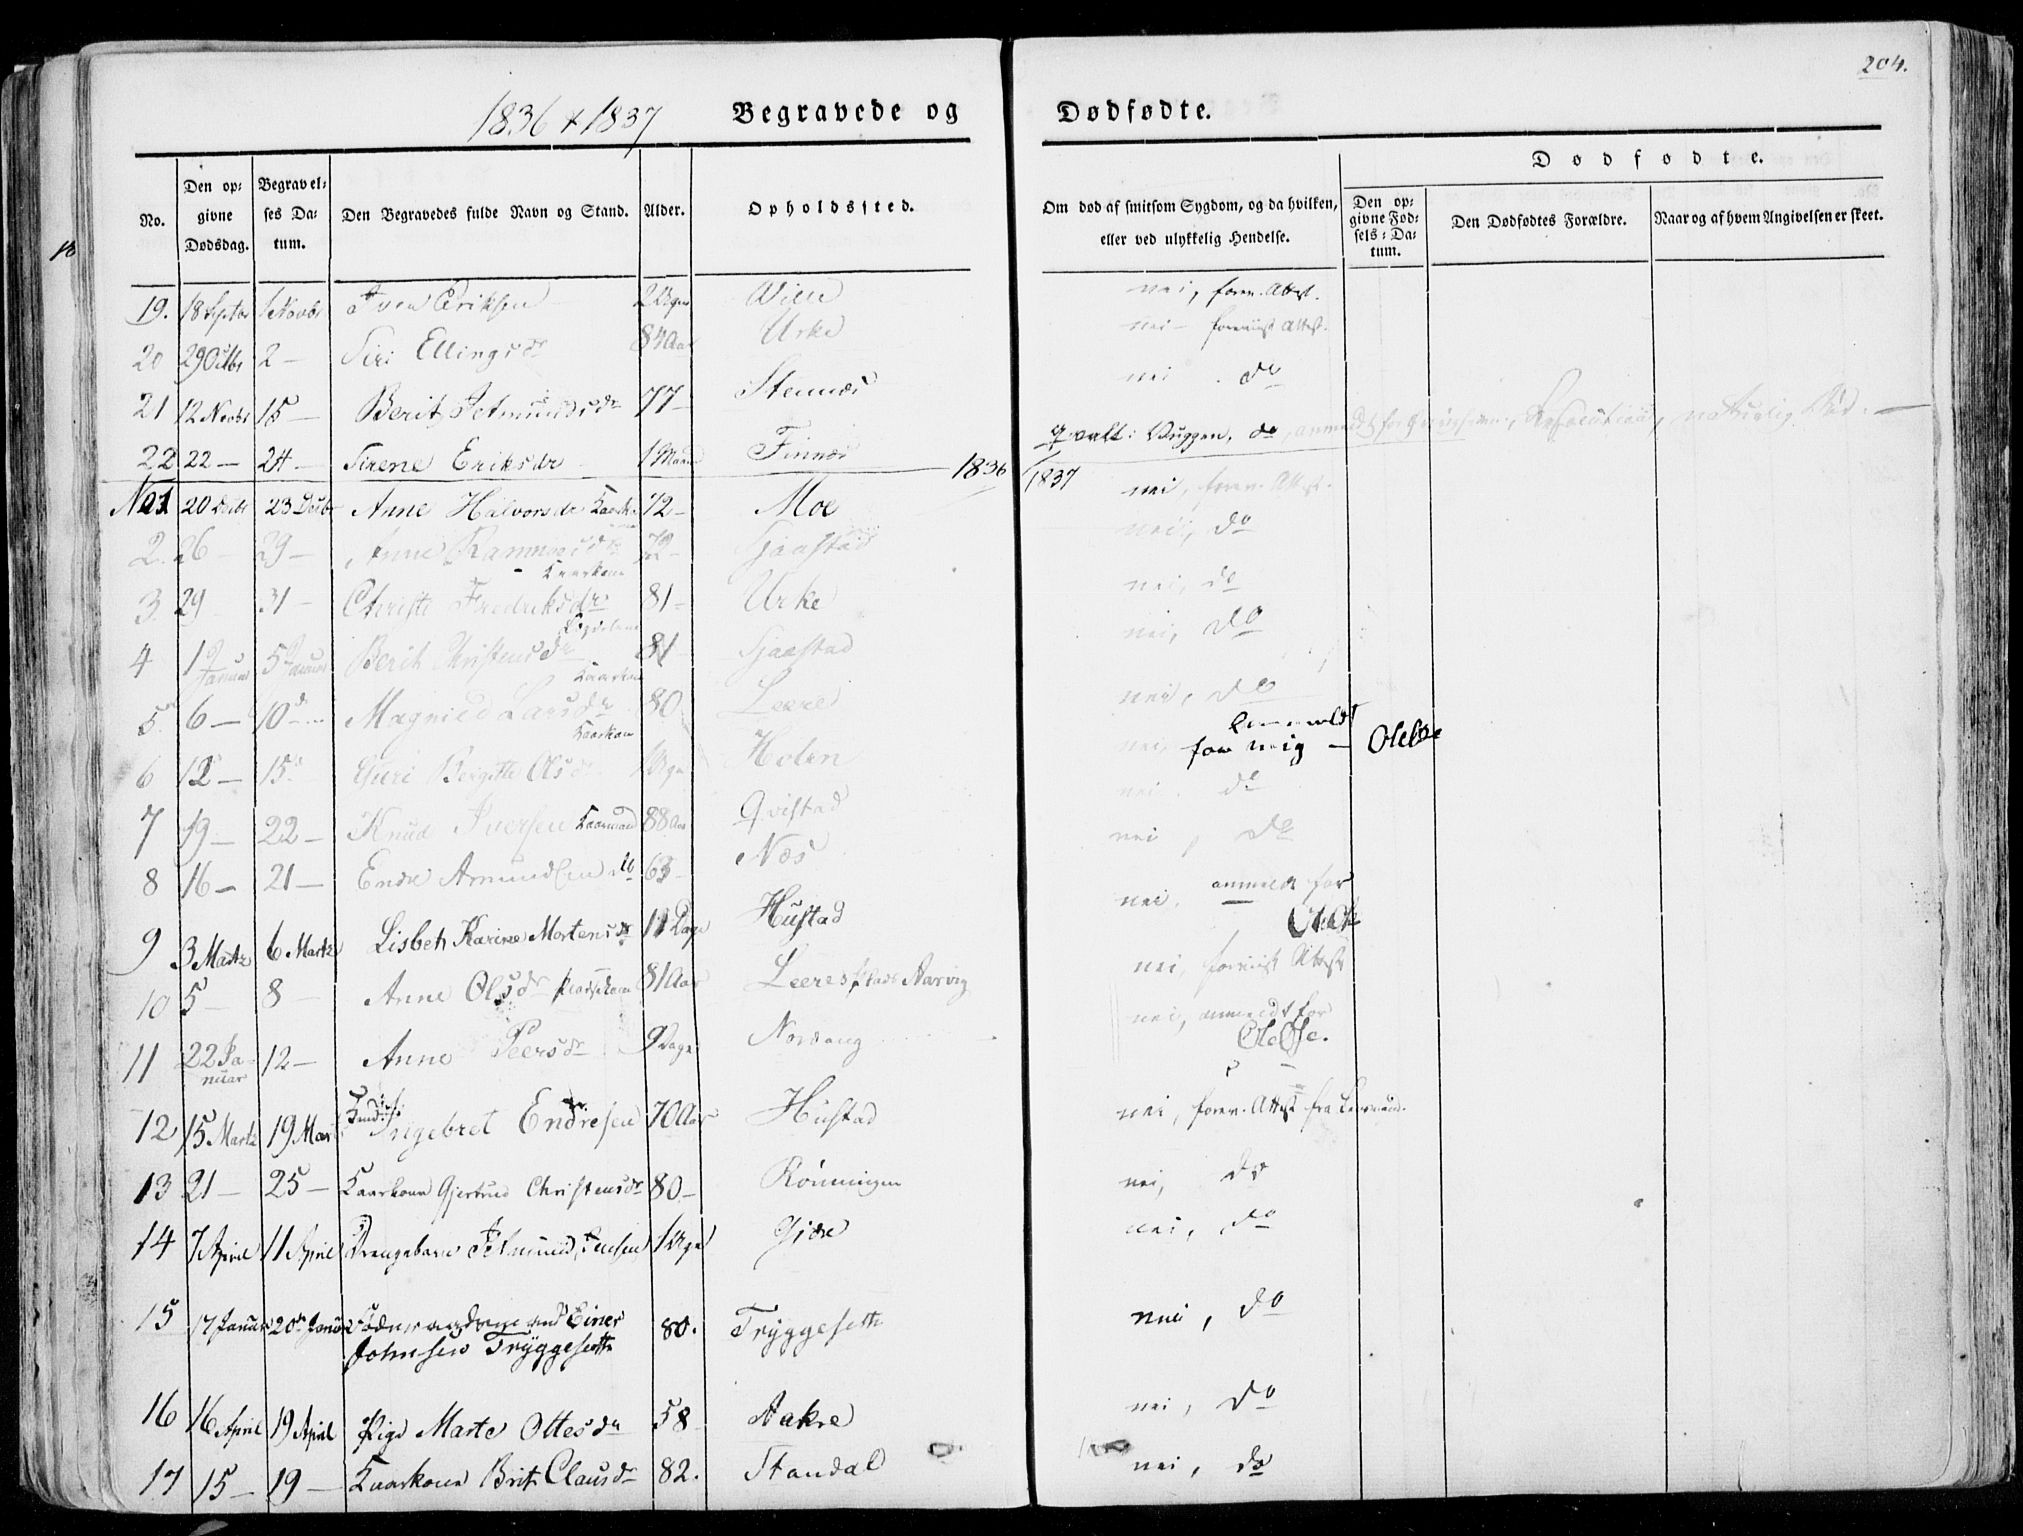 204.
1836 & 1837 Begravede og Dødfødte.
No. Den opgivne Dødsdag. Begravelses Datum. Den Begravedes fulde Navn og Stand. Alder. Opholdssted. Om død af smitsom Sygdom, og da hvilken, eller ved ulykkelig Hendelse. Dødfødte. Den opgivne Fødsels-Datum. Den Dødfødtes Forældre. Naar og af hvem Angivelsen er skeet.
19. 18 Septbr 1 Novbr Iver Eriksen 2 Uger Wiile nei, forev. Attest.
20 29 Octbr 2 — Siri Ellingsdr 84 Aar Urke nei — foreviist Attest.
21 12 Novbr 15 — Berit Petmundsdr 77 — Stennæs nei . do
22 22 — 24 — Sirene Eriksdr 1 Maan Finnæs qvalt i Vuggen, do, anmeldt for
1836 1837
No 1 20 Decbr 23 Decbr Anne Halvorsdr Kaarkone 72 — Moe nei, forev. Attest.
2. 26 — 29 — Anne Rasmusdr Kaarkone Sjaastad nei, do
3. 29 31 — Christi Fredriksdr 81 — Urke nei, do
4 1 Januar 5 Januar Berith Christensdr Kaarkone 81 Sjaastad nei, do
5 6 — 10 d — Magnild Larsdr Kaarkone 80 Leere nei, do
6 12 — 15 Guri Bergitte Olsdr 1 Uge Holen nei, anmeldt for mig — OleOse
7 19 — 22 — Knud Iversen Kaarmand 88 Aar Qvistad nei . do
8 16 — 21 — Endre Amundsen do 63 — Næs nei , do
9 3 Martz 6 Martz Lisbeth Karine Mortensdr 11 Dage Hustad nei, anmeldt for OleOse
10 5 8 — Anne Olsdr 81 Aar Leeres Plads Aarvig nei, foreviist Attest
11 22 Januar 12 — Anne Peersdr 9 Dage Norvang nei, anmeldt for OleOse.
12 15 Martz 19 Mart Ingebret Endresen 70 Aar Hustad nei, forev. Attest fra Lensmand.
13 21 — 25 — Kaarkone Gjertrud Christensdr 80 — Rönningen nei, do
14 7 April 11 April Drengebarn Petmund Jensen 1 Uge Gjøre nei, do
15 17 Januar 20de Januar Einer Johnsen Tryggesetth 80. Tryggesetth nei, do
16 16 April 19 April Pige Marte Ottesdr 58 — Aakre nei, do
17 15 — 19 — Kaarkone Brit Clausdr 82. Standal nei, do